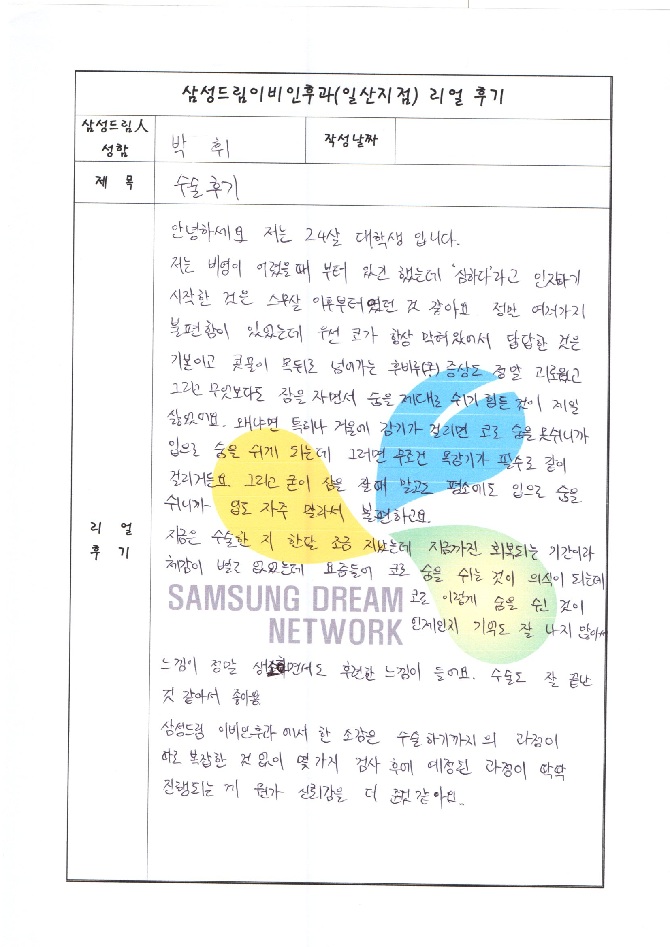 삼성드림이비인후과(일산지점) 리얼 후기
삼성드림人 성함
박 휘
작성날짜
제 목
수술후기
리 얼 후 기
안녕하세요 저는 24살 대학생 입니다.
저는 비염이 어렸을때 부터 있긴 했는데 '심하다'라고 인지하기
시작한 것은 스무살 이후부터였던 것 같아요 정말 여러가지
불편함이 있었는데 우선 코가 항상 막혀있어서 답답한 것은
기본이고 콧물이 목뒤로 넘어가는 후비루 증상도 정말 괴로웠고
그리고 무엇보다도 잠을 자면서 숨을 제대로 쉬기 힘든 것이 제일
싫었어요. 왜냐면 특히나 겨울에 감기가 걸리면 코로 숨을 못쉬니까
입으로 숨을 쉬게 되는데 그러면 무조건 목감기가 필수로 같이
걸리거든요 그리고 굳이 잠을 잘때 말고도 평소에도 입으로 숨을
쉬니까 입도 자주 말라서 불편하고요.
지금은 수술한 지 한달 조금 지났는데 지금까진 회복되는 기간이라
체감이 별로 없었는데 요즘들어 코로 숨을 쉬는 것이 의식이 되는데
SAMSUNG DREAM
NETWORK
코로 이렇게 숨을 쉰 것이
언제인지 기억도 잘 나지 않아서
느낌이 정말 생소하면서도 후련한 느낌이 들어요. 수술도 잘 끝난
것 같아서 좋아용
삼성드림 이비인후과에서 한 소감은 수술하기까지의 과정이
따로 복잡한 것 없이 몇가지 검사 후에 예정된 과정이 딱딱
진행되는 게 뭔가 신뢰감을 더 준것 같아요..